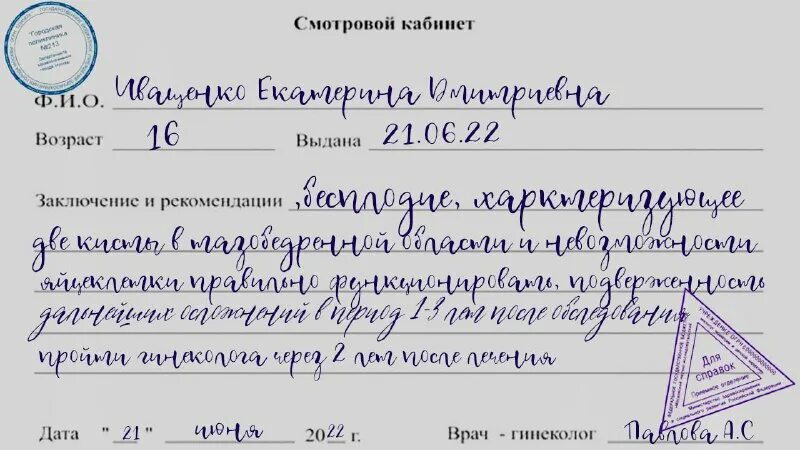 Смотровой кабинет
"Городская
поликлиника
№213
Ф.И.О. Иващенко Екатерина Дмитриевна
Возраст 16 Выдана 21.06.22
Заключение и рекомендации ,бесплодие, харктеризующее
две кисты в тазобедренной области и невозможности
яйцеклетки правильно функционировать, подверженность
дальнейших осложнений в период 1-3 лет после обследования
пройти гинеколога через 2 лет после лечения
Для
справок
Приемное отделение
Министерство здравоохранения
и социального развития Российской Федерации
Дата "21" июня 2022 г. Врач - гинеколог Павлова А.С